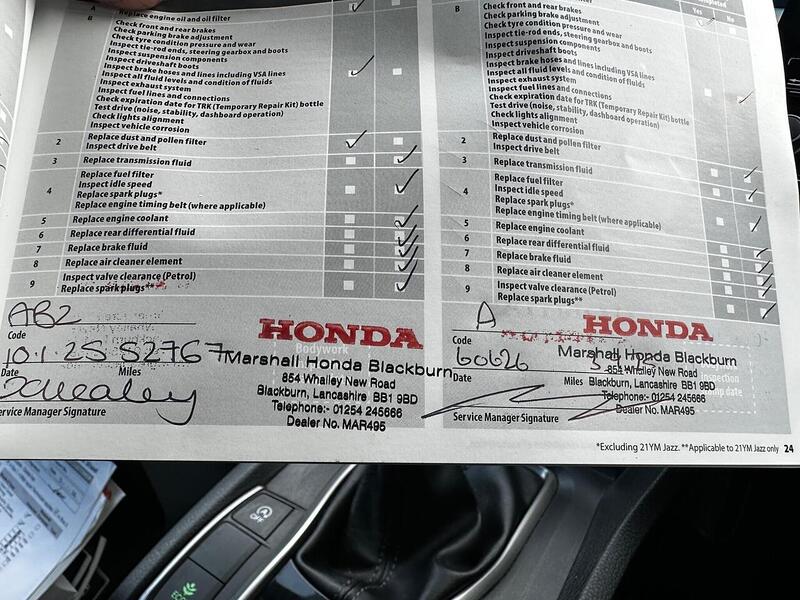 A
Replace engine oil and oil filter
B
Check front and rear brakes
Check parking brake adjustment
Check tyre condition pressure and wear
Inspect tie-rod ends, steering gearbox and boots
Inspect suspension components
Inspect driveshaft boots
Inspect brake hoses and lines including VSA lines
Inspect all fluid levels and condition of fluids
Inspect exhaust system
Inspect fuel lines and connections
Check expiration date for TRK (Temporary Repair Kit) bottle
Test drive (noise, stability, dashboard operation)
Check lights alignment
Inspect vehicle corrosion
2
Replace dust and pollen filter
Inspect drive belt
3
Replace transmission fluid
4
Replace fuel filter
Inspect idle speed
Replace spark plugs*
Replace engine timing belt (where applicable)
5
Replace engine coolant
6
Replace rear differential fluid
7
Replace brake fluid
8
Replace air cleaner element
9
Inspect valve clearance (Petrol)
Replace spark plugs**
AB2
Code
10.1.25 52767
Date Miles
Service Manager Signature
HONDA
Marshall Honda Blackburn
854 Whalley New Road
Blackburn, Lancashire BB1 9BD
Telephone:- 01254 245666
Dealer No. MAR495
Yes No
B
Check front and rear brakes
Check parking brake adjustment
Check tyre condition pressure and wear
Inspect tie-rod ends, steering gearbox and boots
Inspect suspension components
Inspect driveshaft boots
Inspect brake hoses and lines including VSA lines
Inspect all fluid levels and condition of fluids
Inspect exhaust system
Inspect fuel lines and connections
Check expiration date for TRK (Temporary Repair Kit) bottle
Test drive (noise, stability, dashboard operation)
Check lights alignment
Inspect vehicle corrosion
2
Replace dust and pollen filter
Inspect drive belt
3
Replace transmission fluid
4
Replace fuel filter
Inspect idle speed
Replace spark plugs*
Replace engine timing belt (where applicable)
5
Replace engine coolant
6
Replace rear differential fluid
7
Replace brake fluid
8
Replace air cleaner element
9
Inspect valve clearance (Petrol)
Replace spark plugs**
A
Code
60626
Date Miles
Service Manager Signature
HONDA
Marshall Honda Blackburn
854 Whalley New Road
Blackburn, Lancashire BB1 9BD
Telephone:- 01254 245666
Dealer No. MAR495
*Excluding 21YM Jazz. **Applicable to 21YM Jazz only 24
OFF